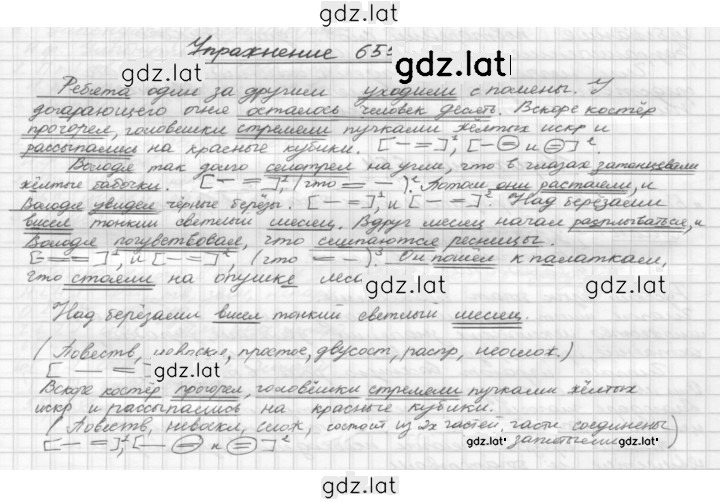 gdz.lat
Упражнение 655
gdz.lat
Ребята один за другим уходили с поляны. У
догорающего огня осталось человек десять. Вскоре костёр
прогорел, головешки стреляли пучками жёлтых искр и
рассыпались на красные кубики. [- =]¹, [- ⊜ и ⊜]².
Володя так долго смотрел на угли, что в глазах затанцевали
жёлтые бабочки. [- =]¹, (что = -)². Потом они растаяли, и
Володя увидел чёрные берёзы. [- =]¹, и [- =]². Над берёзами
висел тонкий светлый месяц. Вдруг месяц начал расплываться, и
Володя почувствовал, что слипаются ресницы.
[- = =]¹, и [- =]², (что = -)³. Он пошёл к палаткам,
что стояли на опушке леса
gdz.lat
gdz.lat
Над берёзами висел тонкий светлый месяц.
(Повеств, простое, двусост, распр, неослож.)
gdz.lat
Вскоре костёр прогорел, головёшки стреляли пучками жёлтых
искр и рассыпались на красные кубики.
(Повеств, невоскл, слож, состоит из 2х частей, части соединены
[- =]¹, [- ⊜ и ⊜]²
gdz.lat
gdz.lat
gdz.lat